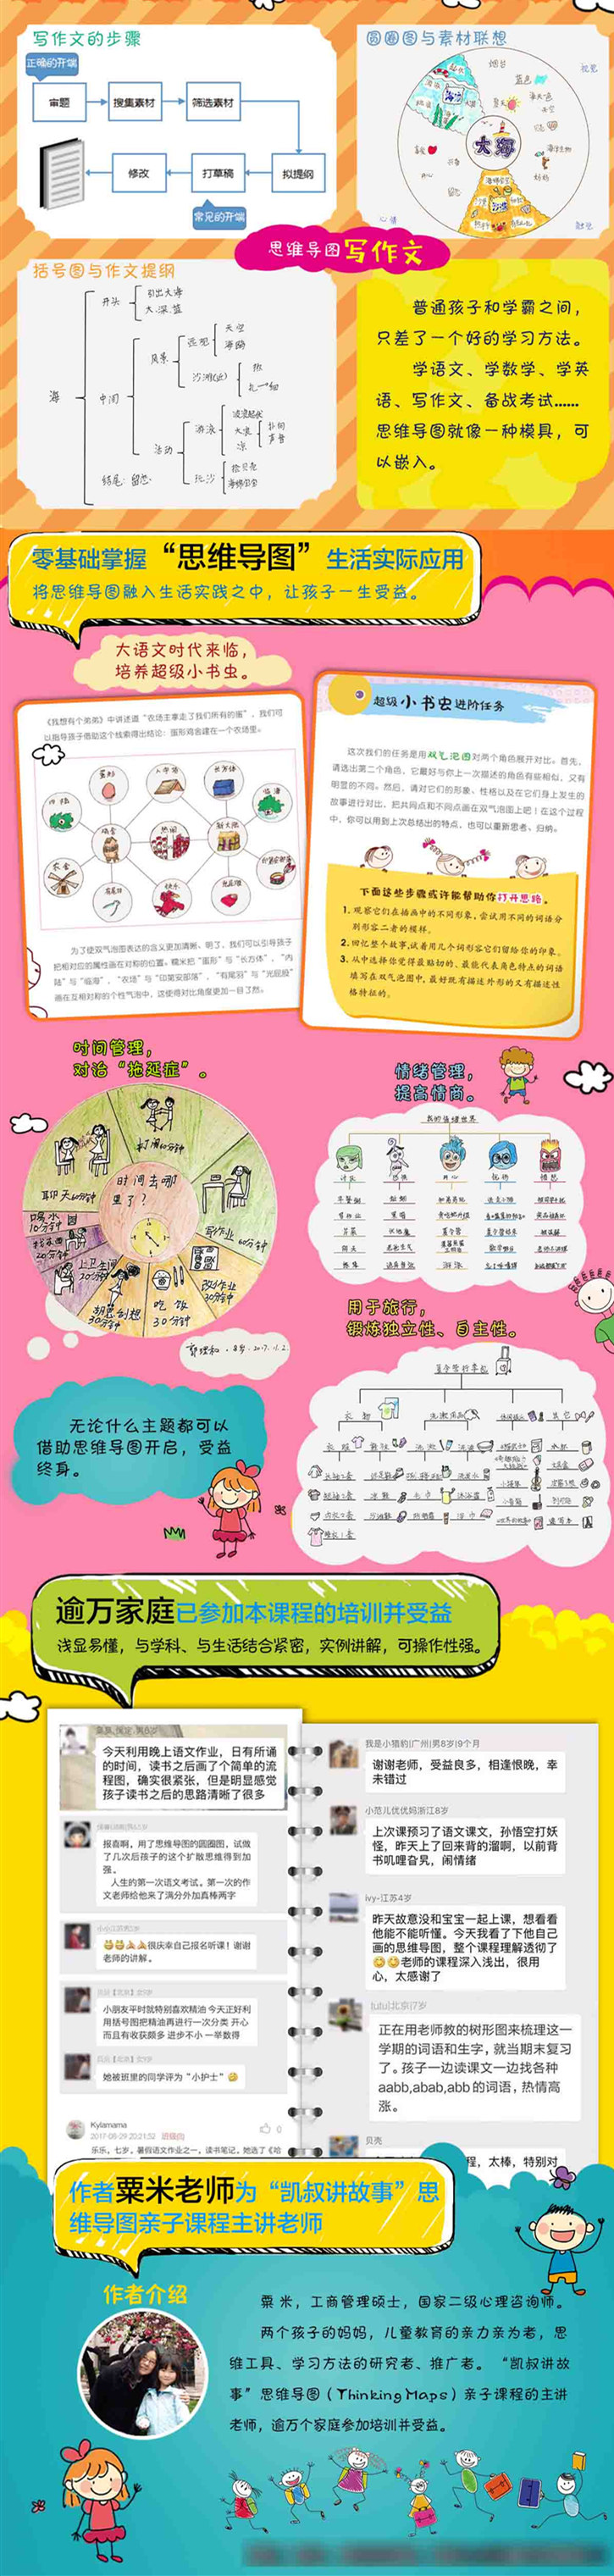 写作文的步骤
正确的开端
审题
搜集素材
筛选素材
修改
打草稿
拟提纲
常见的开端
圆圈图与素材联想
大海
思维导图写作文
括号图与作文提纲
海
开头
引出大海
大.深.蓝
中间
风景
远观
天空
海鸥
沙滩(近)
活动
游泳
玩沙
结尾
普通孩子和学霸之间，
只差了一个好的学习方法。
学语文、学数学、学英
语、写作文、备战考试……
思维导图就像一种模具，可
以嵌入。
零基础掌握“思维导图”生活实际应用
将思维导图融入生活实践之中，让孩子一生受益。
大语文时代来临，
培养超级小书虫。
《我想有个弟弟》中讲述道“农场主拿走了我们所有的蛋”，我们可
以指导孩子借助这个线索得出结论：蛋形鸡舍建在一个农场里。
为了使双气泡图表达的含义更加清晰、明了，我们可以引导孩子
把相对应的属性画在对称的位置。糯米把“蛋形”与“长方体”，“内
陆”与“临海”，“农场”与“印第安部落”，“有尾羽”与“光屁股”
画在互相对称的个性气泡中，这使得对比角度更加一目了然。
超级小书虫进阶任务
这次我们的任务是用双气泡图对两个角色展开对比。首先，
请选出第二个角色，它最好与你上一次描述的角色有些相似，又有
明显的不同。然后，请对它们的形象、性格以及在它们身上发生的
故事进行对比，把共同点和不同点画在双气泡图上吧！在这个过程
中，你可以用到上次总结出的特点，也可以重新思考、归纳。
下面这些步骤或许能帮助你打开思路。
1. 观察它们在插画中的不同形象，尝试用不同的词语分
别形容二者的模样。
2. 回忆整个故事，试着用几个词形容它们留给你的印象。
3. 从中选择你觉得最贴切的、最能代表角色特点的词语
填写在双气泡图中，最好既有描述外形的又有描述性
格特征的。
时间管理，
对治“拖延症”。
时间去哪
里了？
聊天60分钟
写作业60分钟
喝水
10分钟
找东西
20分钟
上卫生间
20分钟
胡思乱想
30分钟
吃饭
30分钟
改作业
30分钟
情绪管理，
提高情商。
我的情绪世界
用于旅行，
锻炼独立性、自主性。
夏令营行李包
衣物
洗漱用品
其它
无论什么主题都可以
借助思维导图开启，受益
终身。
逾万家庭已参加本课程的培训并受益
浅显易懂，与学科、与生活结合紧密，实例讲解，可操作性强。
今天利用晚上语文作业，日有所诵
的时间，读书之后画了个简单的流
程图，确实很紧张，但是明显感觉
孩子读书之后的思路清晰了很多
报喜啊，用了思维导图的圆圈图，试做
了几次后孩子的这个扩散思维得到加
强。
人生的第一次语文考试。第一次的作
文老师给他来了满分外加真棒两字
很庆幸自己报名听课！谢谢
老师的讲解。
小朋友平时就特别喜欢精油 今天正好利
用括号图把精油再进行一次分类 开心
而且有收获颇多 进步不小 一举数得
她被班里的同学评为“小护士”
Kylamama
2017-08-29 20:21:52
乐乐，七岁，暑假语文作业之一，读书笔记，她选了《哈
我是小猎豹|广州|男8岁|9个月
谢谢老师，受益良多，相逢恨晚，幸
未错过
小范儿优优妈浙江8岁
上次课预习了语文课文，孙悟空打妖
怪，昨天上了回来背的溜啊，以前背
书叽哩旮旯，闹情绪
ivy-江苏4岁
昨天故意没和宝宝一起上课，想看看
他能不能听懂。今天我看了下他自己
画的思维导图，整个课程理解透彻了
老师的课程深入浅出，很用
心，太感谢了
tutu|北京|7岁
正在用老师教的树形图来梳理这一
学期的词语和生字，就当期末复习
了。孩子一边读课文一边找各种
aabb,abab,abb的词语，热情高
涨。
贝壳
程，太棒，特别对
作者粟米老师为“凯叔讲故事”思
维导图亲子课程主讲老师
作者介绍
粟米，工商管理硕士，国家二级心理咨询师。
两个孩子的妈妈，儿童教育的亲力亲为者，思
维工具、学习方法的研究者、推广者。“凯叔讲故
事”思维导图（Thinking Maps）亲子课程的主讲
老师，逾万个家庭参加培训并受益。